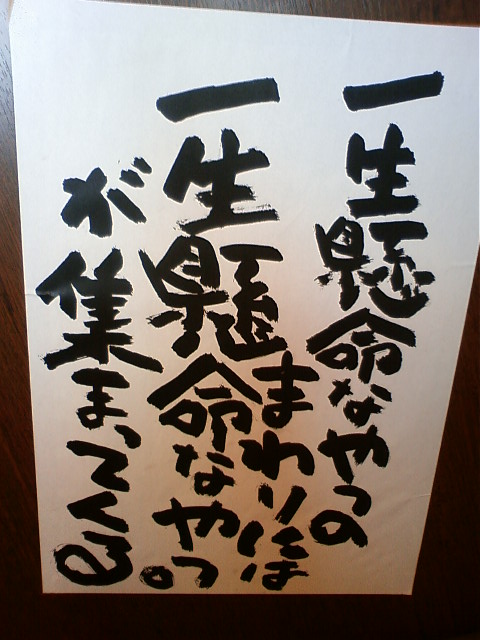 一生懸命なやつの
まわりには
一生懸命なやつ
が集まってくる。